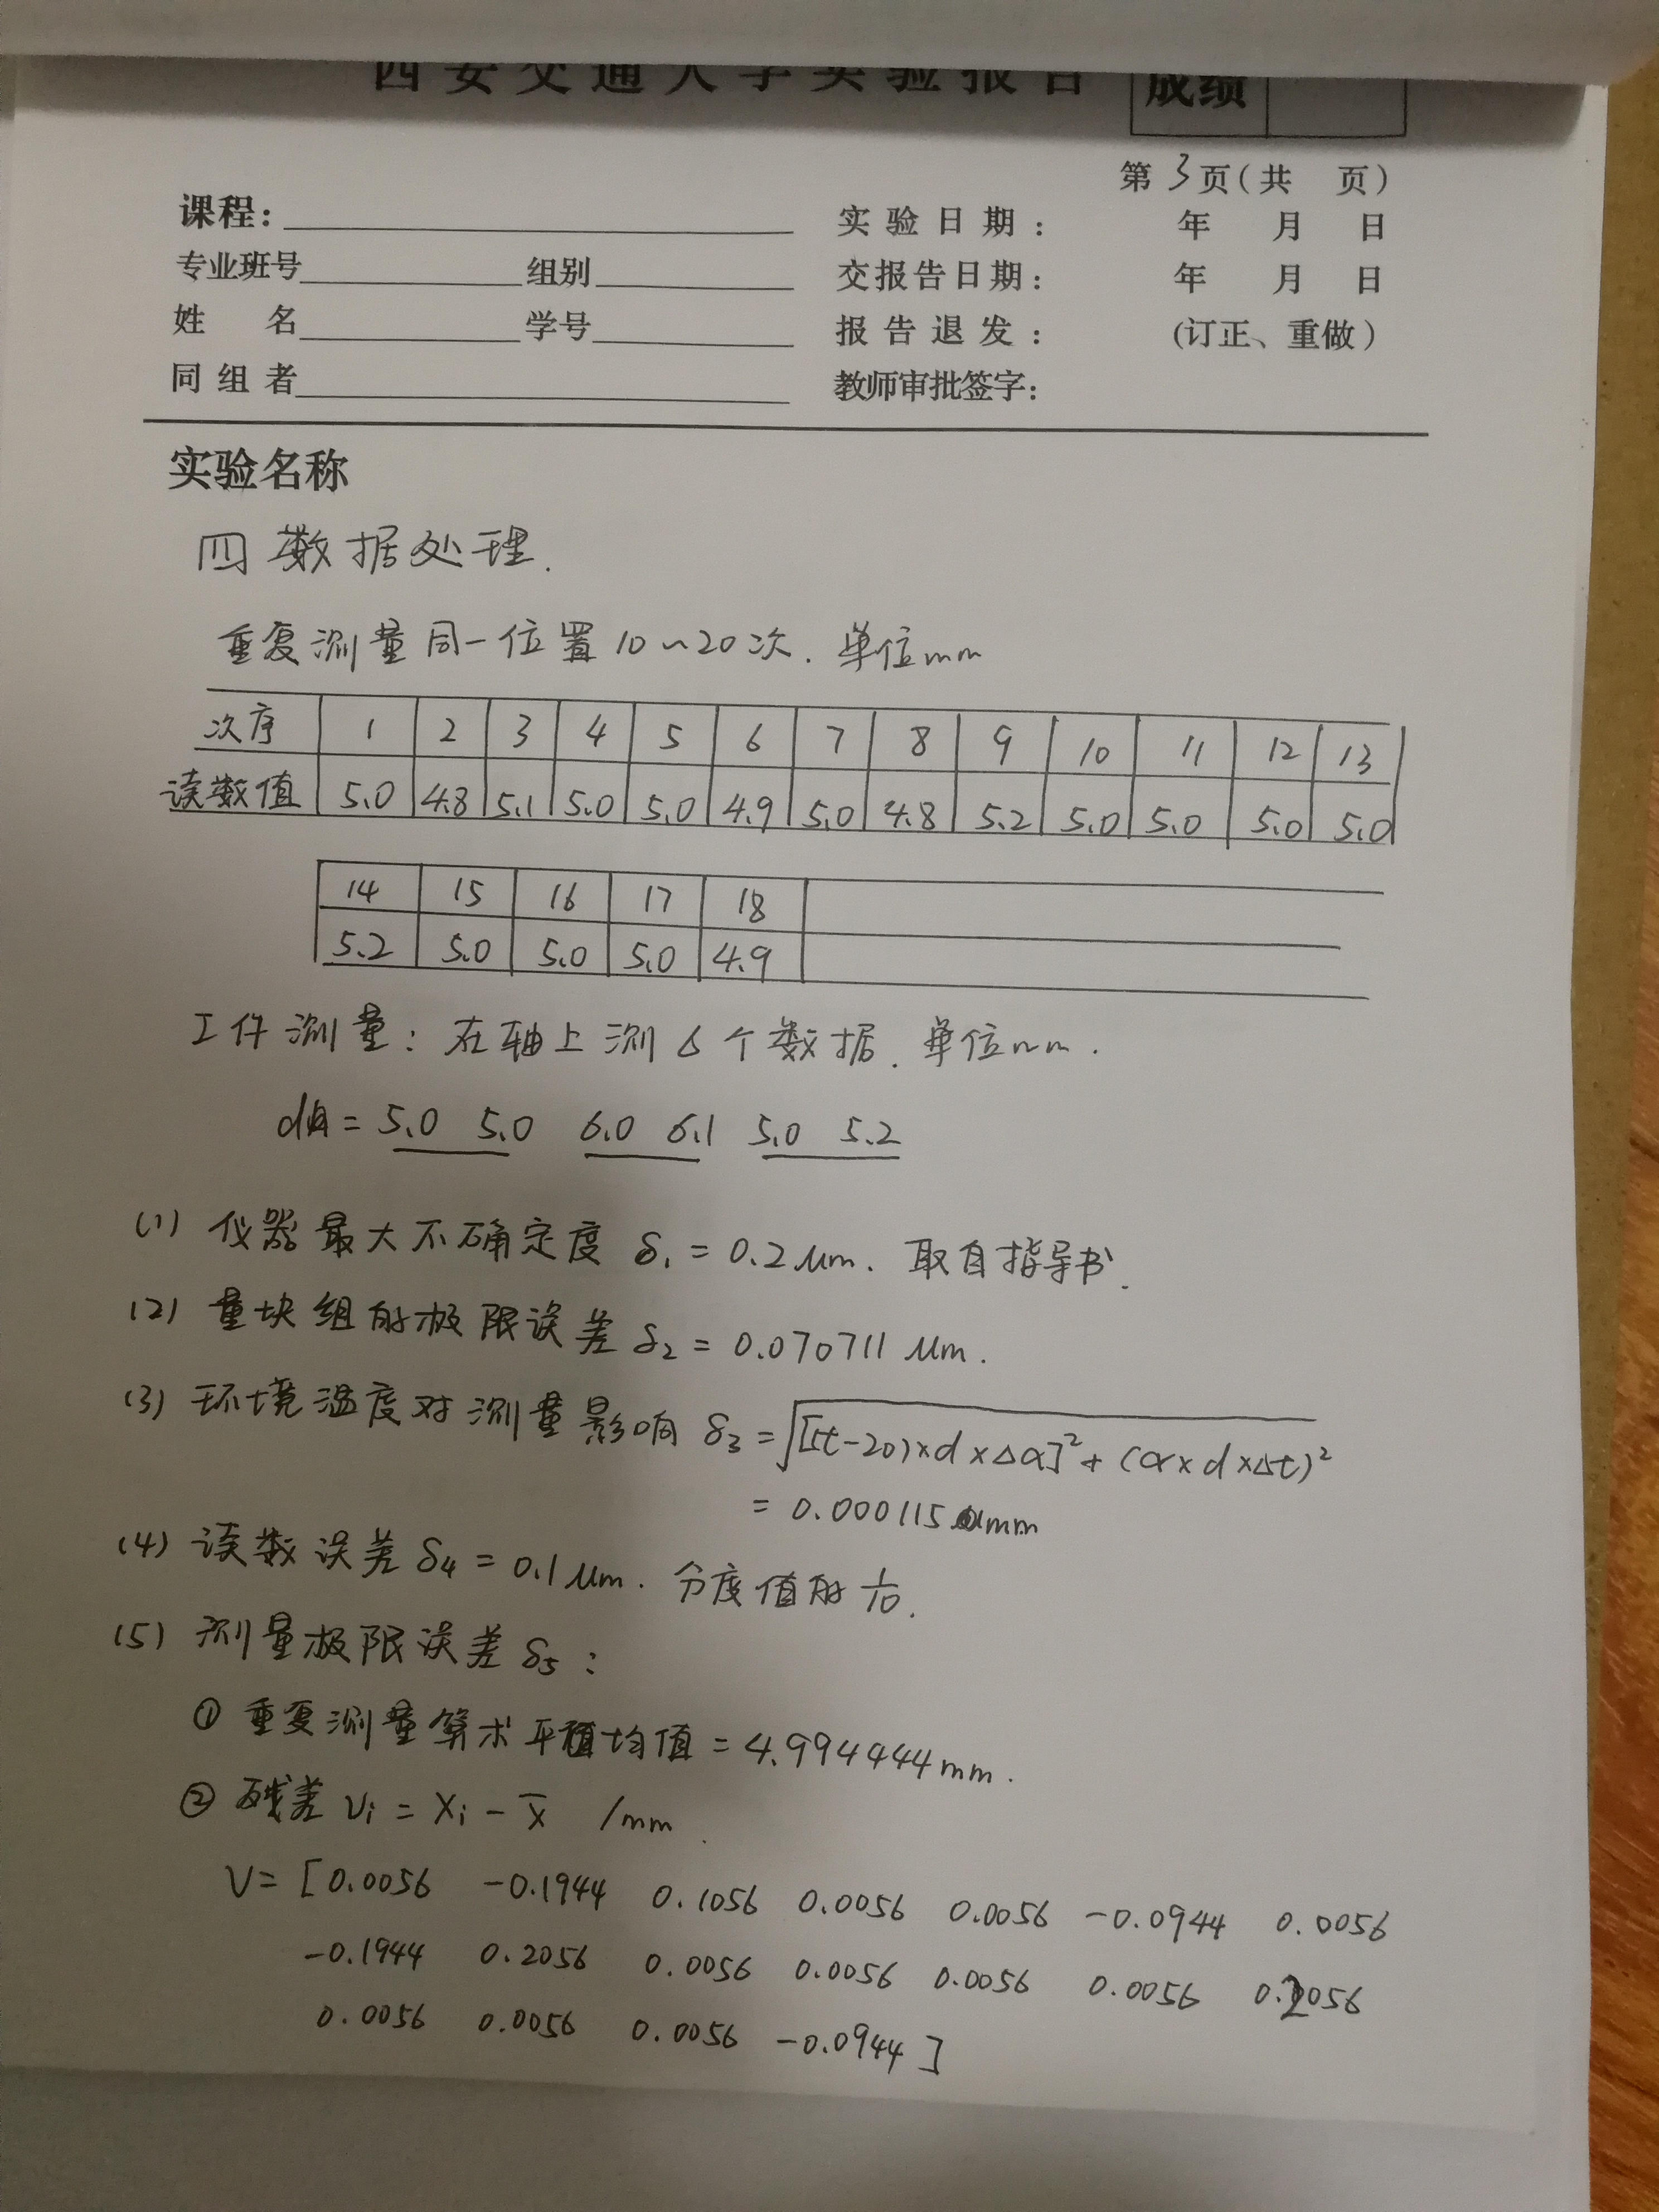 西安交通大学实验报告 成绩
第 3 页(共 页)
课程: 实验日期: 年 月 日
专业班号 组别 交报告日期: 年 月 日
姓 名 学号 报告退发: (订正、重做)
同组者 教师审批签字:
实验名称
四 数据处理.
重复测量同一位置10~20次. 单位mm
次序 1 2 3 4 5 6 7 8 9 10 11 12 13
读数值 5.0 4.8 5.1 5.0 5.0 4.9 5.0 4.8 5.2 5.0 5.0 5.0 5.0
14 15 16 17 18
5.2 5.0 5.0 5.0 4.9
工件测量: 在轴上测6个数据. 单位mm.
d = 5.0 5.0 6.0 6.1 5.0 5.2
(1) 仪器最大不确定度 δ₁ = 0.2μm. 取自指导书.
(2) 量块组的极限误差 δ₂ = 0.070711 μm.
(3) 环境温度对测量影响 δ₃ = √[(t-20)×d×Δα]²+(α×d×Δt)²
= 0.000115 mm
(4) 读数误差 δ₄ = 0.1μm. 分度值的 1/10.
(5) 测量极限误差 δ₅:
① 重复测量算术平均值 = 4.994444mm.
② 残差 Vi = Xi - X̄ /mm.
V = [0.0056 -0.1944 0.1056 0.0056 0.0056 -0.0944 0.0056
-0.1944 0.2056 0.0056 0.0056 0.0056 0.0056 0.2056
0.0056 0.0056 0.0056 -0.0944]